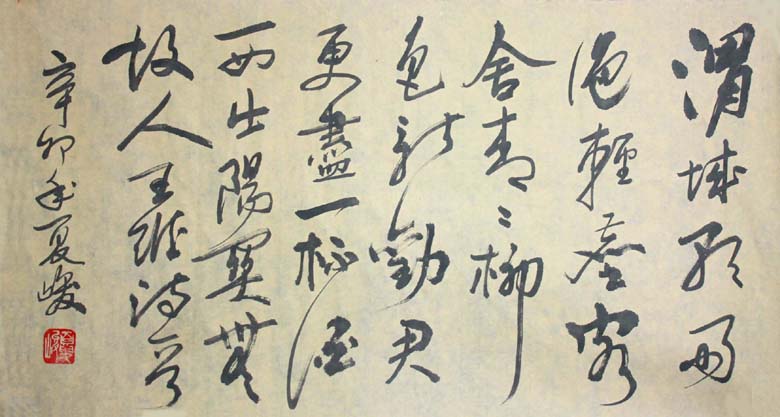 渭城朝雨
浥輕塵客
舍青々柳
色新勸君
更盡一杯酒
西出陽關無
故人王維詩
辛卯年夏峻